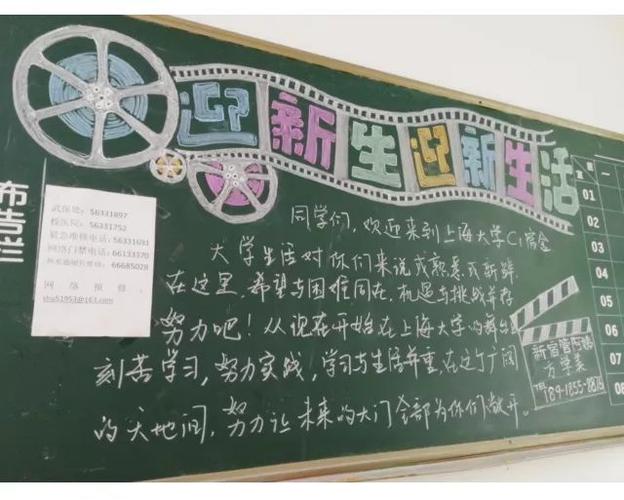 迎新生迎新生活
布告栏
武保处: 56331897
校医院: 56331752
紧急维修电话: 56331631
网络门禁电话: 66133370
66685028
网络报修:
shu51953@163.com
同学们,欢迎来到上海大学C1宿舍
大学生活对你们来说或熟悉或新鲜
在这里希望与困难同在,机遇与挑战并存
努力吧!从现在开始在上海大学的舞台
刻苦学习,努力实践,学习与生活并重,在这个广阔
的天地间,努力让未来的大门全部为你们敞开。
新宿管阿姨
方学美
一
01
02
03
04
05
06
07
08